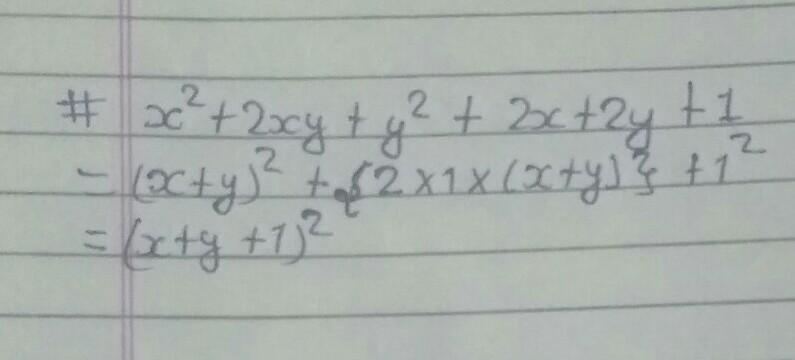 # x² + 2xy + y² + 2x + 2y + 1
= (x+y)² + {2 × 1 × (x+y)} + 1²
= (x+y +1)²